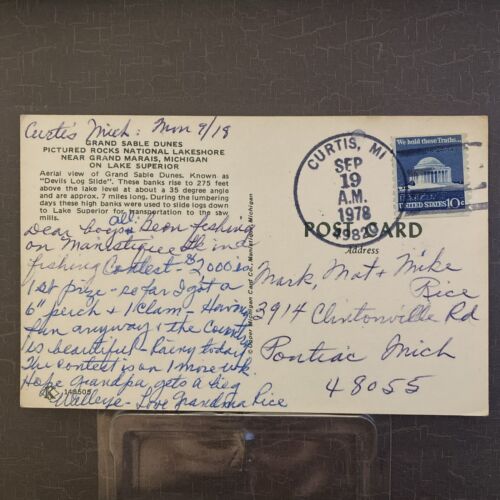 Curtis Mich: Mon 9/18
GRAND SABLE DUNES
PICTURED ROCKS NATIONAL LAKESHORE
NEAR GRAND MARAIS, MICHIGAN
ON LAKE SUPERIOR
Aerial view of Grand Sable Dunes. Known as
"Devils Log Slide". These banks rise to 275 feet
above the lake level at about a 35 degree angle
and are approx. 7 miles long. During the lumbering
days these high banks were used to slide logs down
to Lake Superior for transportation to the saw
mills.
all:
Dear Boys & Been fishing
on Manistique Lk in a
fishing Contest - $2000 is
1st prize - so far I got a
6" perch & 1 Clam - Having
fun anyway & the Country
is beautiful - Rainy today
The contest is on 1 more wk
Hope Grandpa gets a big
Walleye - Love Grandma Rice
148505
CURTIS, MI
SEP
19
A.M.
1978
We hold these Truths...
UNITED STATES 10c
POST CARD
Address
Mark, Mat & Mike
Rice
3914 Clintonville Rd
Pontiac Mich
48055